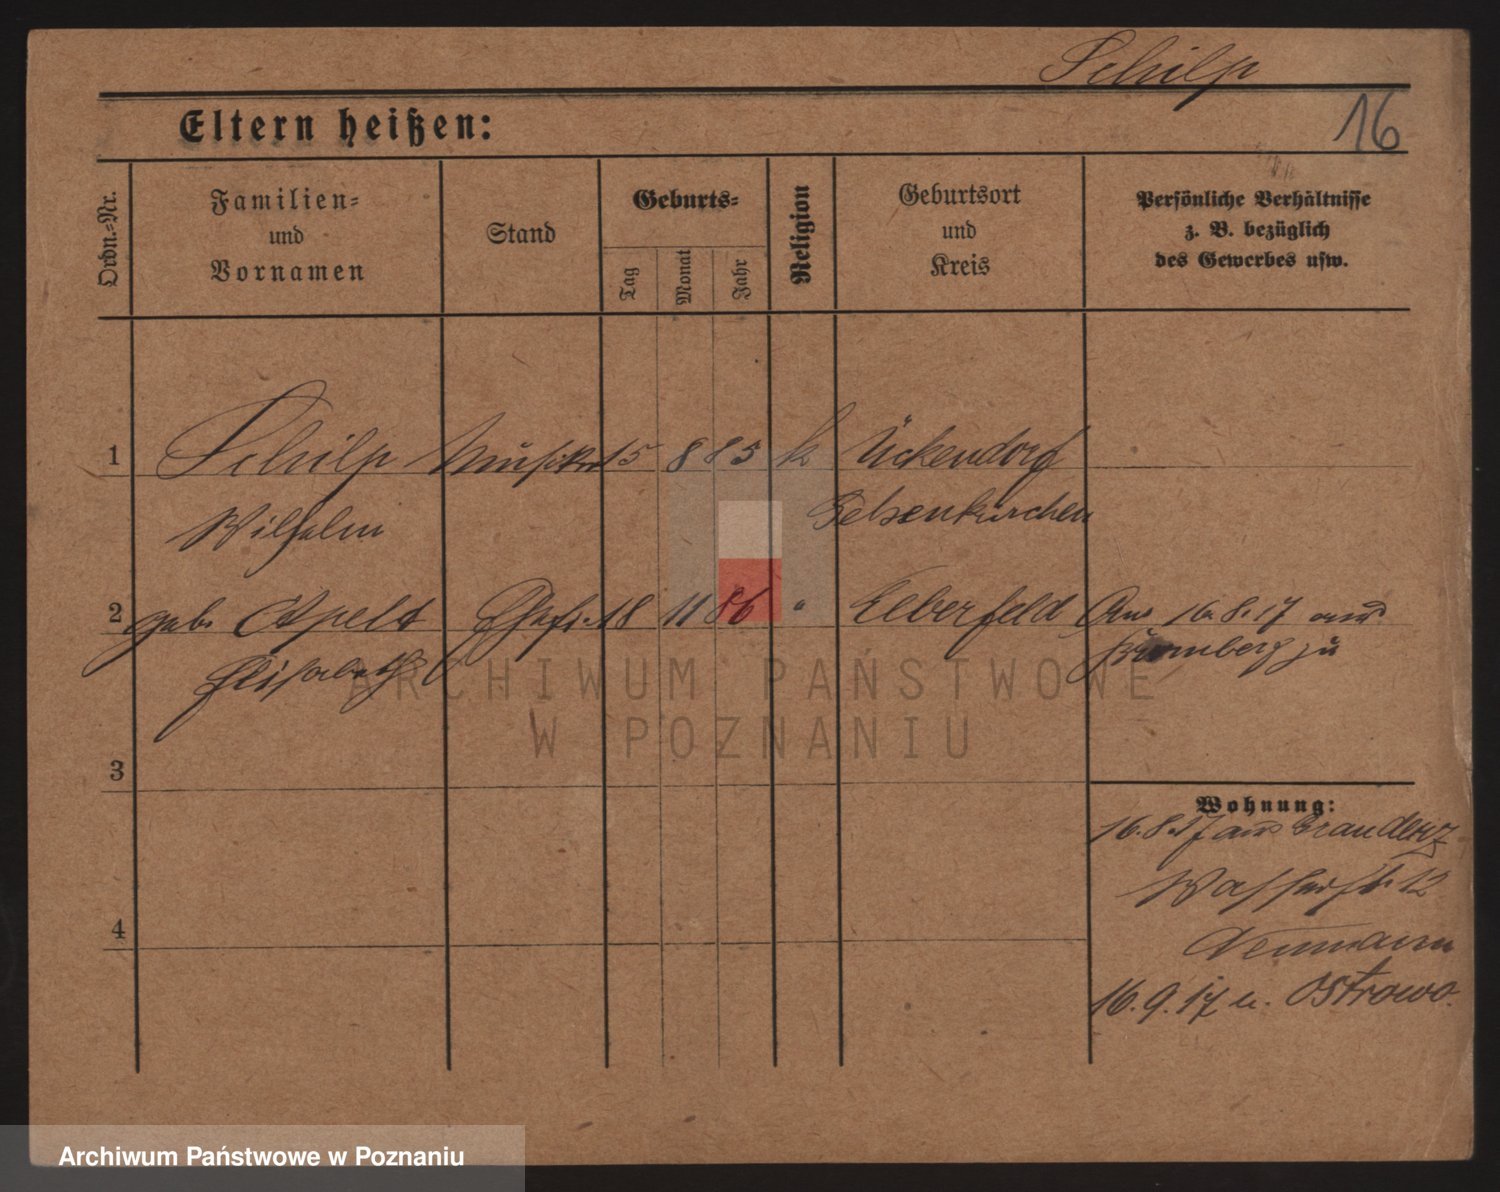 Schilp
16
Eltern heißen:
Ordn.-Nr.
Familien-
und
Vornamen
Stand
Geburts-
Tag
Monat
Jahr
Religion
Geburtsort
und
Kreis
Persönliche Verhältnisse
z. B. bezüglich
des Gewerbes usw.
1 Schilp Musiker 15 8 85 k Ückendorf
Wilhelm Gelsenkirchen
2 geb. Apelt Ehefr. 18 11 86 " Elberfeld Am 16.8.17 aus
Elisabeth zu
ARCHIWUM PAŃSTWOWE
W POZNANIU
3
Wohnung:
16.8.17 aus Graudenz
12
4
Neumann
16.9.17 n. Ostrowo.
Archiwum Państwowe w Poznaniu